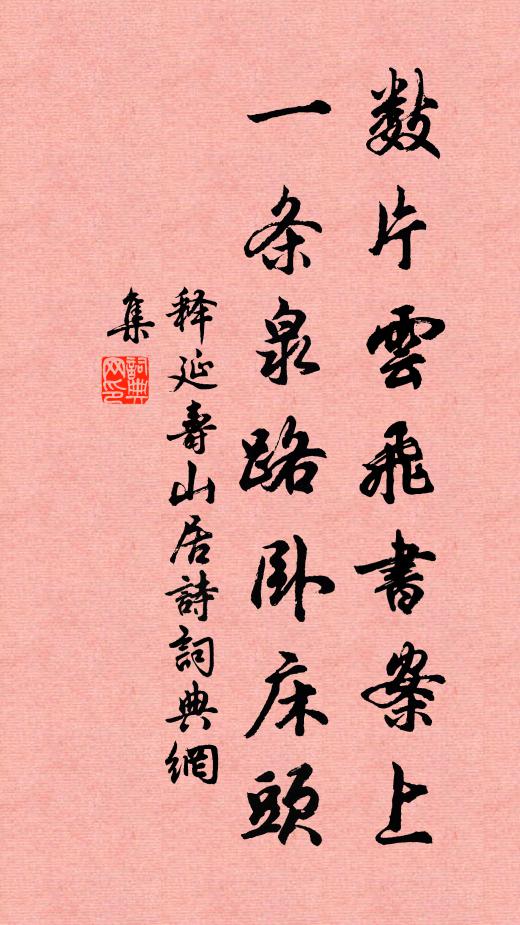 数片雲飛書案上
一条泉路卧床頭
释延壽山居詩詞典網
集
詞典网印